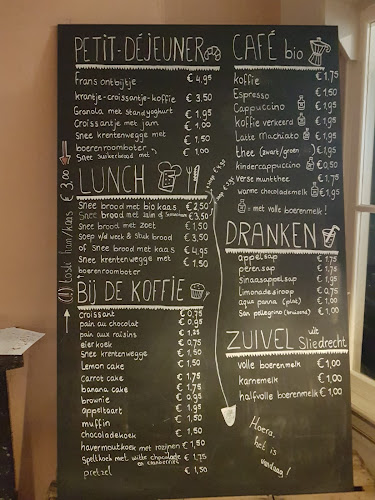 PETIT-DÉJEUNER
Frans ontbijtje € 4,95
krantje-croissantje-koffie € 3,50
Granola met Standyoghurt € 1,95
Croissantje met jam € 1,00
Snee krentenwegge met € 1,45
boerenroomboter
Snee Suikerbrood met
LUNCH
Snee brood met bio kaas € 2,50
Snee brood met zalm of € 3,50
Snee brood met zoet € 1,50
soep v/d week & stuk brood € 3,50
of Snee brood met kaas € 4,95
Snee krentenwegge met € 1,45
boerenroomboter
(H) tosti ham/kaas € 3.00
BIJ DE KOFFIE
croissant € 0,75
pain au chocolat € 0,95
pain aux raisins € 1,25
eierkoek € 0,75
Snee krentenwegge € 0,95
Lemon cake € 1,50
Carrot cake € 1,75
banana cake € 1,75
brownie € 0,95
appeltaart € 1,95
muffin € 1,50
chocoladekoek € 1,50
havermoutkoek met rozijnen € 1,50
speltkoek met witte chocolade € 1,75
en cranberries
pretzel € 1,50
CAFÉ bio
koffie € 1,75
Espresso € 1,50
Cappuccino € 1,95
koffie verkeerd € 1,95
Latte Machiato € 1,95
thee (zwart/groen) € 1,50
kindercappuccino € 0,50
Verse muntthee € 1,75
warme chocolademelk € 1,95
= met volle boerenmelk!
DRANKEN
appelsap € 1,75
perensap € 1,75
Sinaasappelsap € 1,95
Limonadesiroop € 0,75
aqua panna (plat) € 1,00
San pellegrino (bruisend) € 1,00
ZUIVEL uit
Sliedrecht
volle boerenmelk € 1,00
karnemelk € 1,00
halfvolle boerenmelk € 1,00
Hoera,
het is
vandaag!